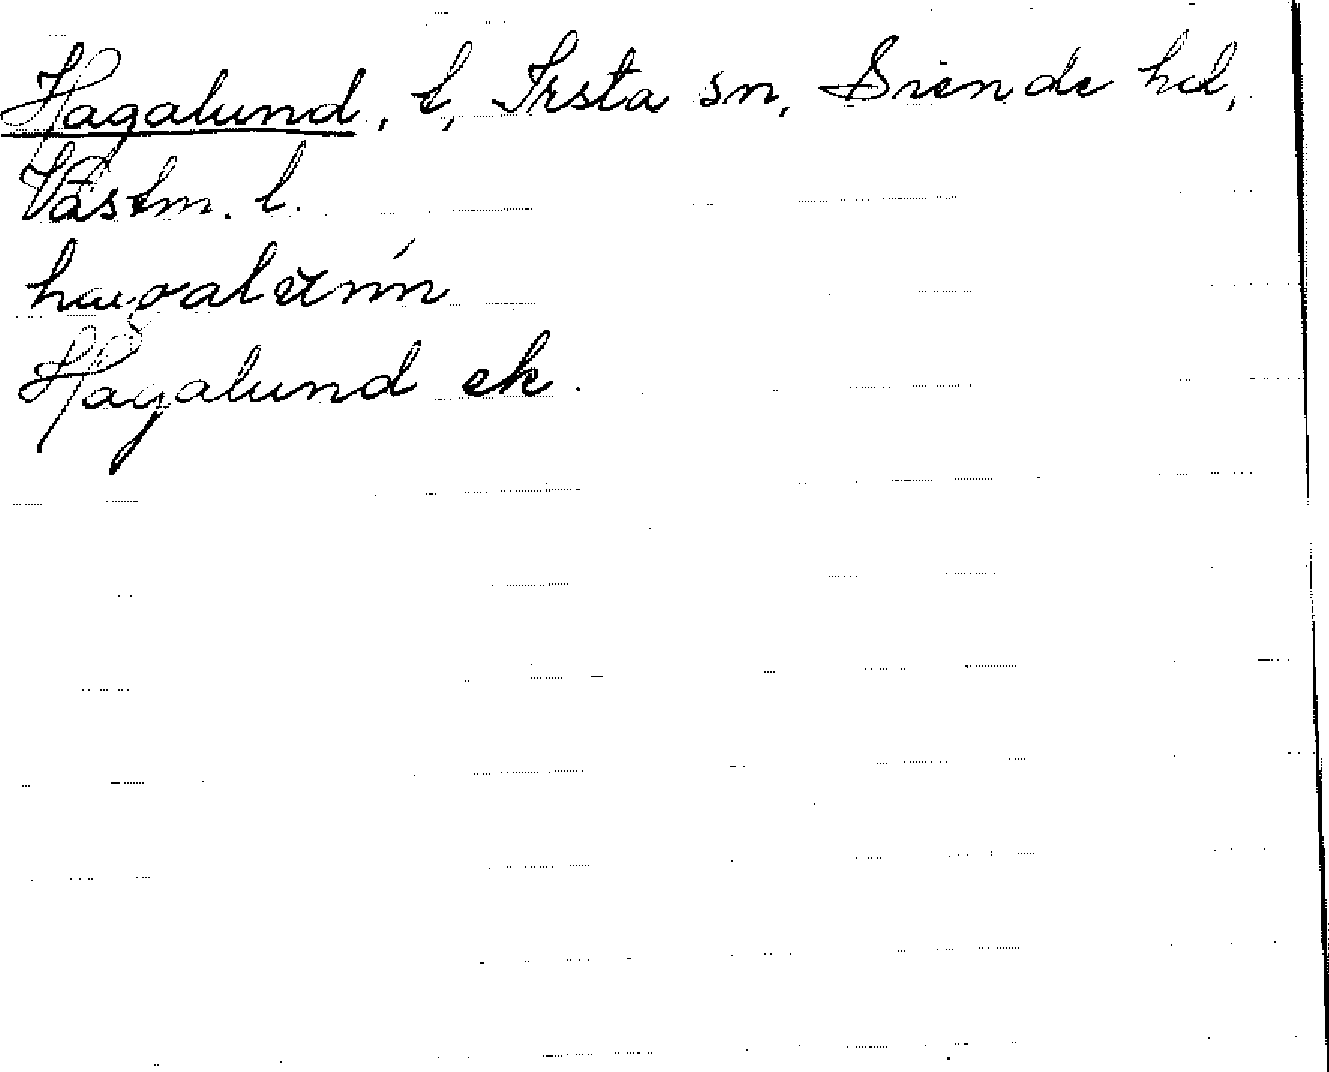 Hagalund, t, Irsta sn, Siende hd,
Västm. l.
Hagalund ek.